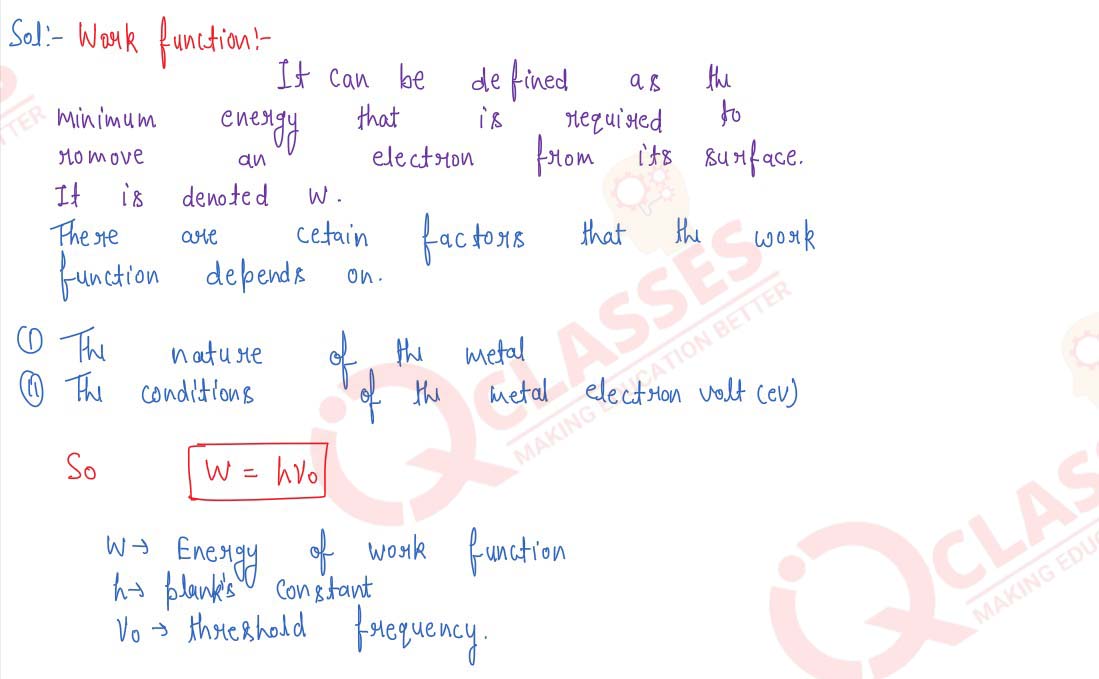 Sol:- Work function:-
It can be defined as the
minimum energy that is required to
romove an electron from its surface.
It is denoted W.
There are cetain factors that the work
function depends on.
(I) The nature of the metal
(II) The conditions of the metal electron volt (ev)
So W = hν₀
W → Energy of work function
h → plank's constant
ν₀ → threshold frequency.
TTER
IQ CLASSES
MAKING EDUCATION BETTER
IQ CLASS
MAKING EDUC